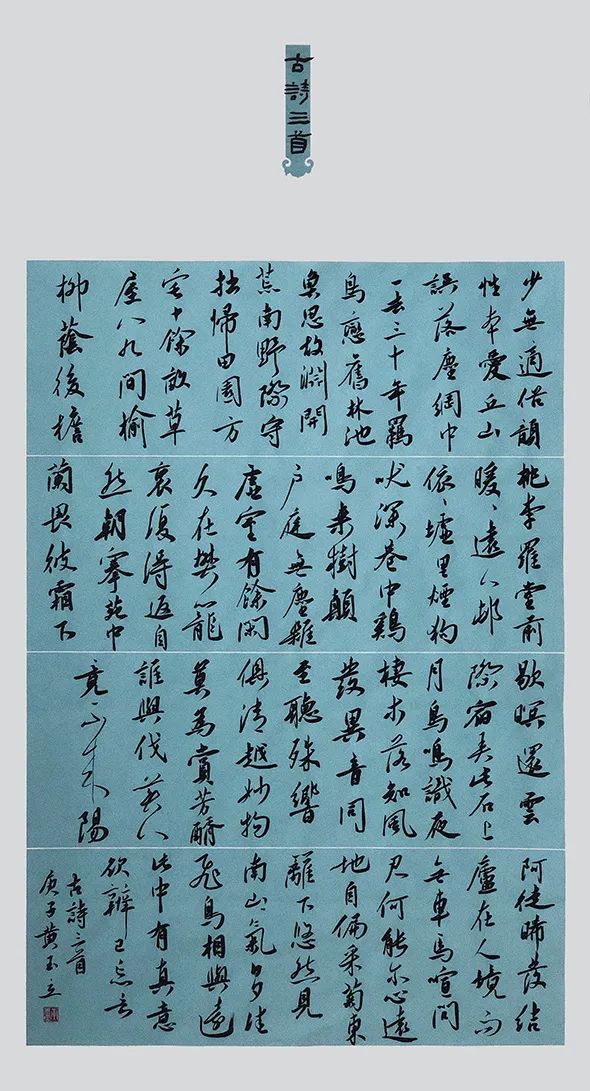 古詩三首
少無適俗韻
性本愛丘山
誤落塵網中
一去三十年羈
鳥戀舊林池
魚思故淵開
荒南野際守
拙歸田園方
宅十餘畝草
屋八九間榆
柳蔭後檐
桃李羅堂前
曖〻遠人邨
依〻墟里煙狗
吠深巷中鷄
鳴桑樹顛
戶庭無塵雜
虛室有餘閑
久在樊籠
裏復得返自
然朝搴苑中
蘭畏彼霜下
歇暝還雲
際宿弄此石上
月鳥鳴識夜
棲木落知風
發異音同
至聽殊響
俱清越妙物
莫為賞芳醑
誰與伐美人
竟不来陽
阿徒晞髮結
廬在人境而
無車馬喧問
君何能尔心遠
地自偏采菊東
籬下悠然見
南山氣夕佳
飛鳥相與還
此中有真意
欲辨已忘言
古詩三首
庚子黄玉立